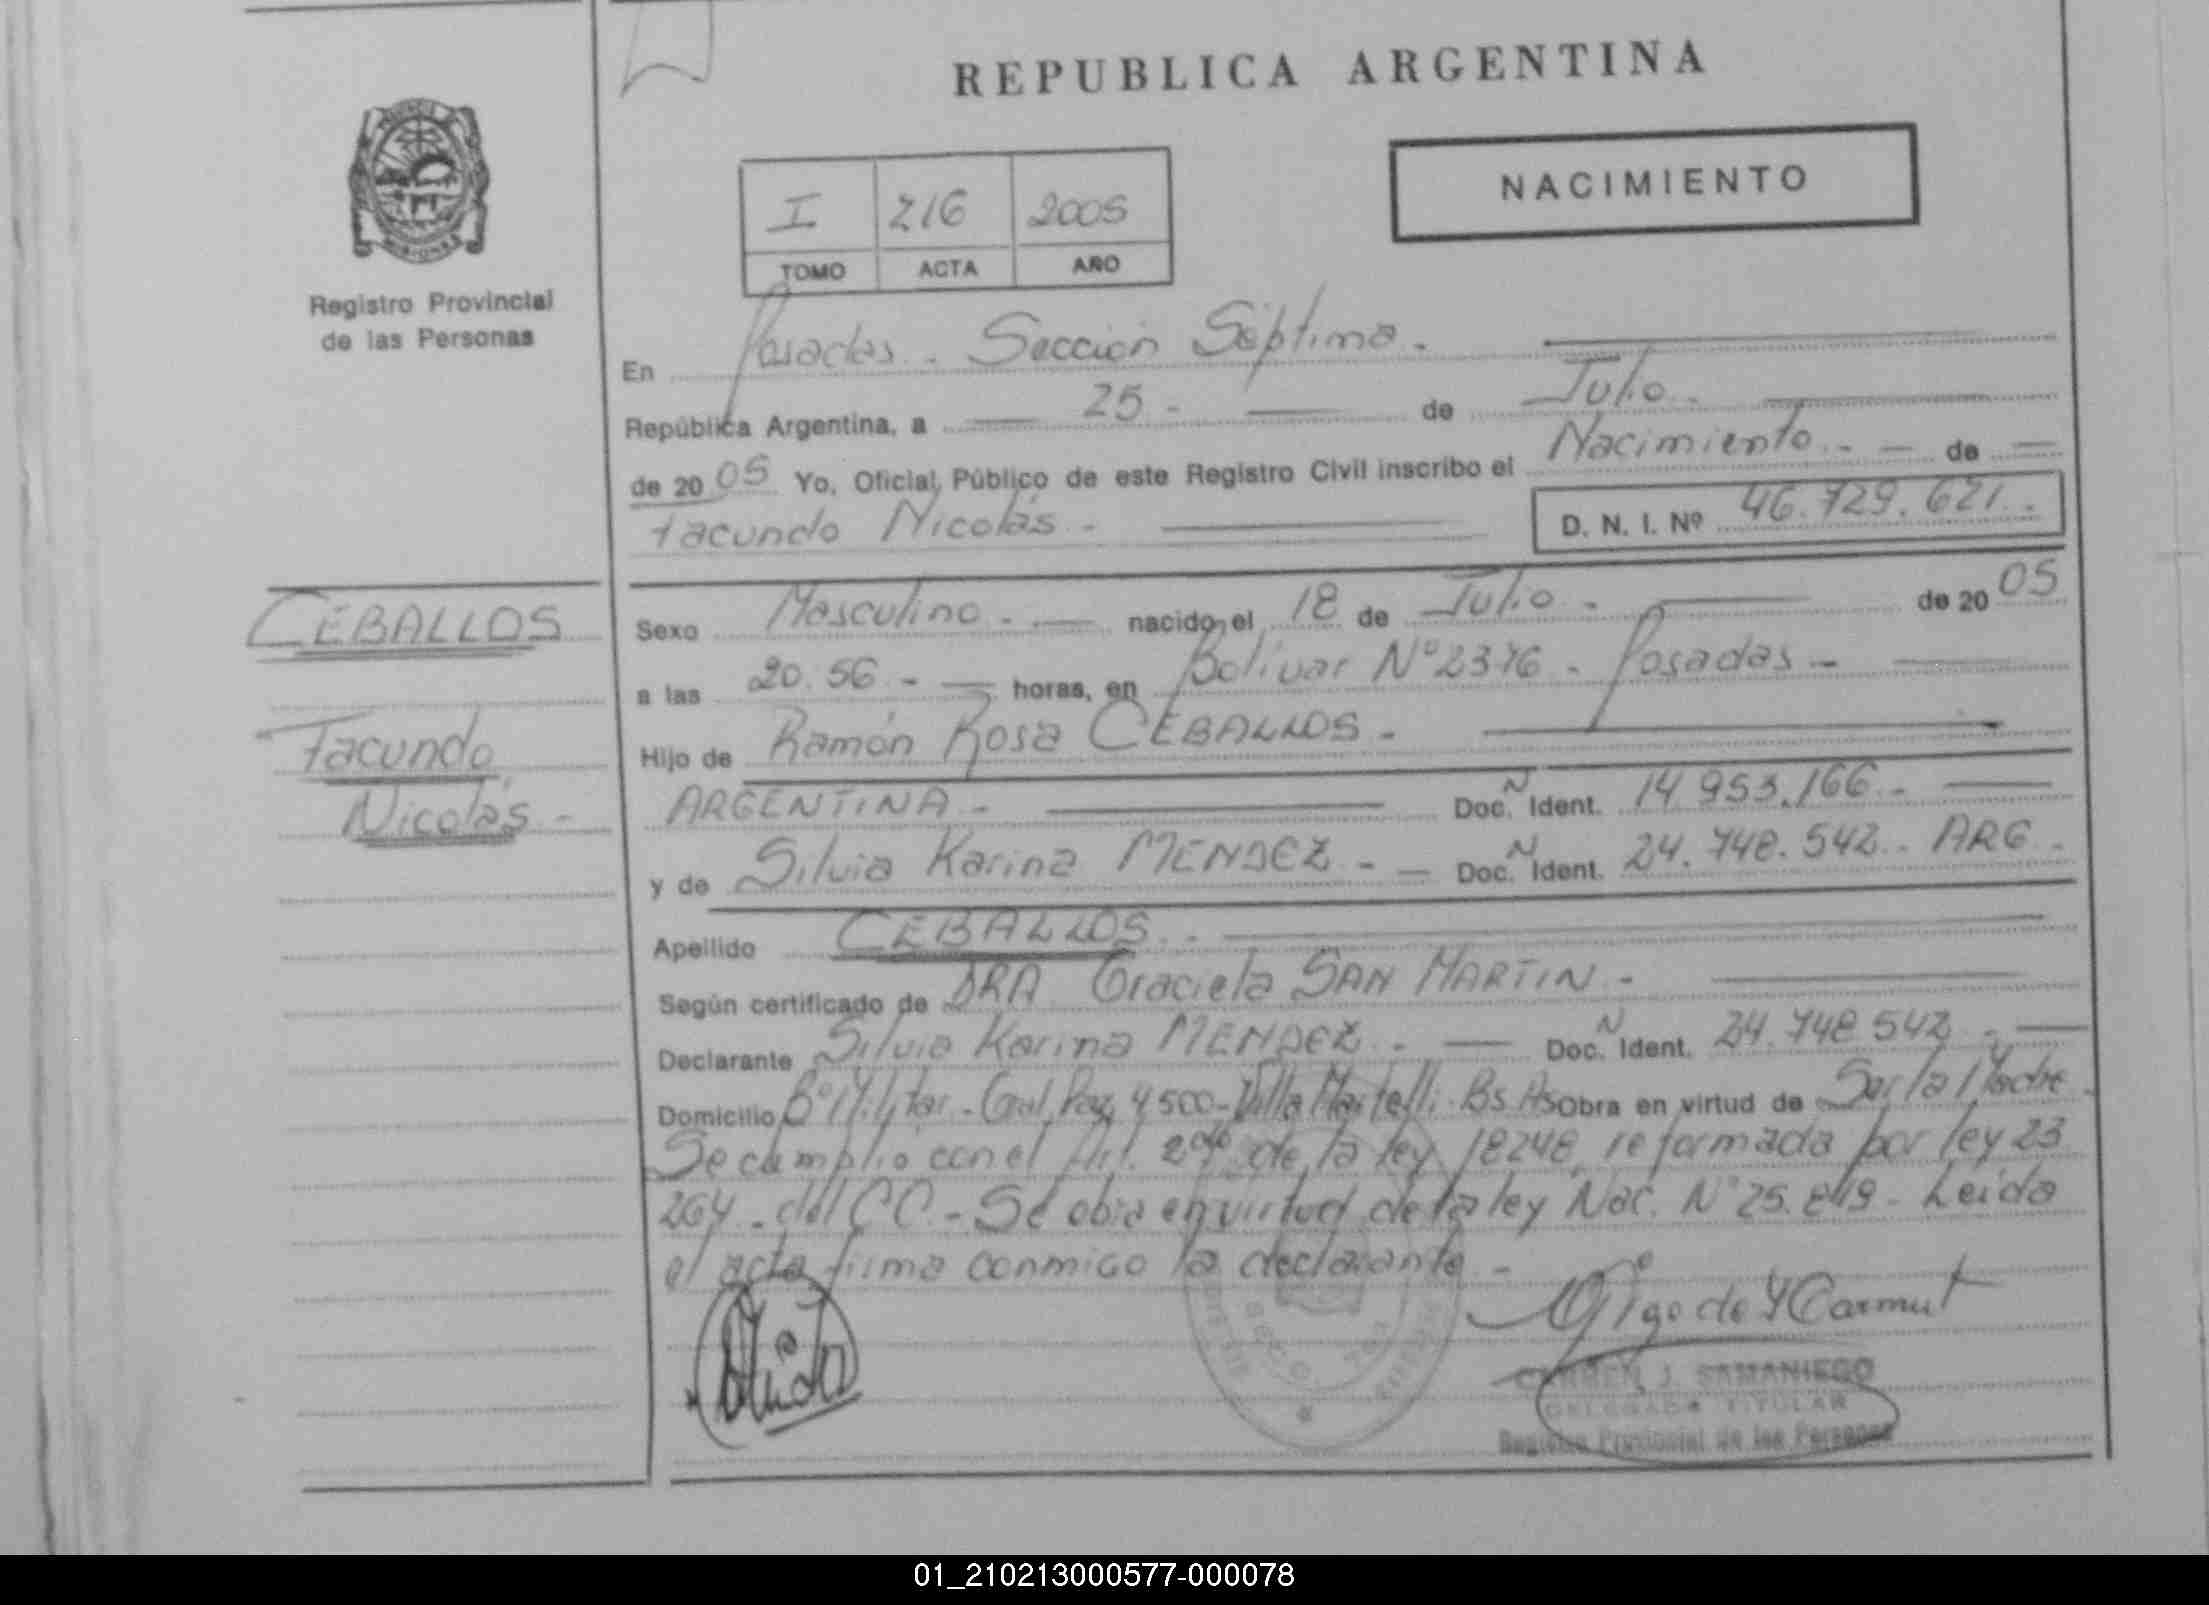 REPUBLICA ARGENTINA
NACIMIENTO
I 216 2005
TOMO ACTA AÑO
Registro Provincial
de las Personas
En Posadas - Sección Séptima -
República Argentina, a 25 - de Julio -
de 20 05 Yo, Oficial Público de este Registro Civil inscribo el Nacimiento - de
Facundo Nicolás - D. N. I. Nº 46.729.621 -
CEBALLOS
Facundo
Nicolás -
Sexo Masculino - nacido el 18 de Julio - de 20 05
a las 20.56 - horas, en Bolívar Nº 2376 - Posadas -
Hijo de Ramón Rosa CEBALLOS -
ARGENTINA - Doc. N Ident. 14 953.166 -
y de Silvia Karina MENDEZ - Doc. N Ident. 24.748.542 - ARG -
Apellido CEBALLOS -
Según certificado de DRA Graciela SAN MARTIN -
Declarante Silvia Karina MENDEZ - Doc. N Ident. 24.748 542 -
Domicilio Bº Militar - Gral. Paz 4500 - Villa Martelli - Bs As Obra en virtud de Ser la Madre -
Se cumplió con el Art. de la ley 18248, reformada por ley 23
264 - del CC. - Se obra en virtud de la ley Nac. Nº 25.819 - Leida
el acta firma conmigo la declarante -
CARMEN J. SAMANIEGO
DELEGADA TITULAR
Registro Provincial de las Personas
01_210213000577-000078